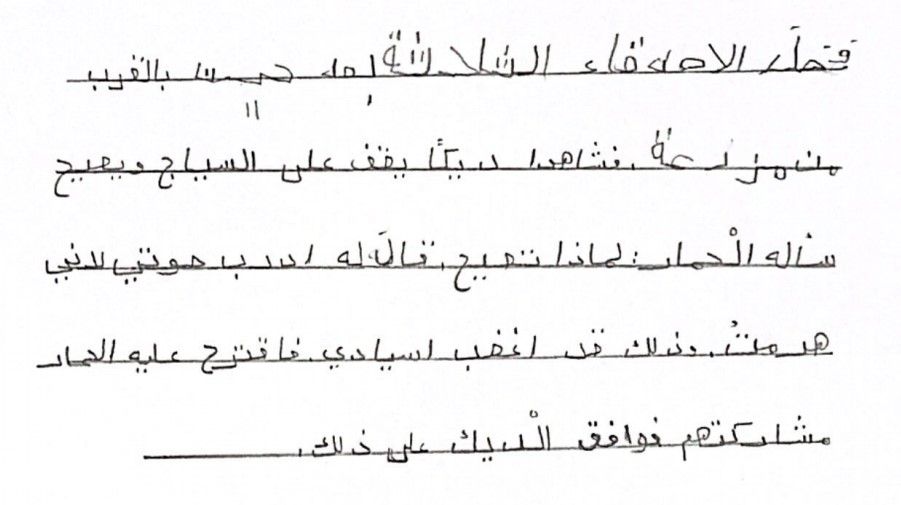 الاصدقاء الثلاثة بالقرب
من مزرعة .فشاهدا ديكًا يقف على السياج ويصيح
سأله الْحمار: لماذا تصيح. قالَ له ادرب صوتي لانني
هرمتُ. وذلك قد اغضب اسيادي. فاقترح عليه الحمار
مشاركتهم فوافق الْديك على ذلك.